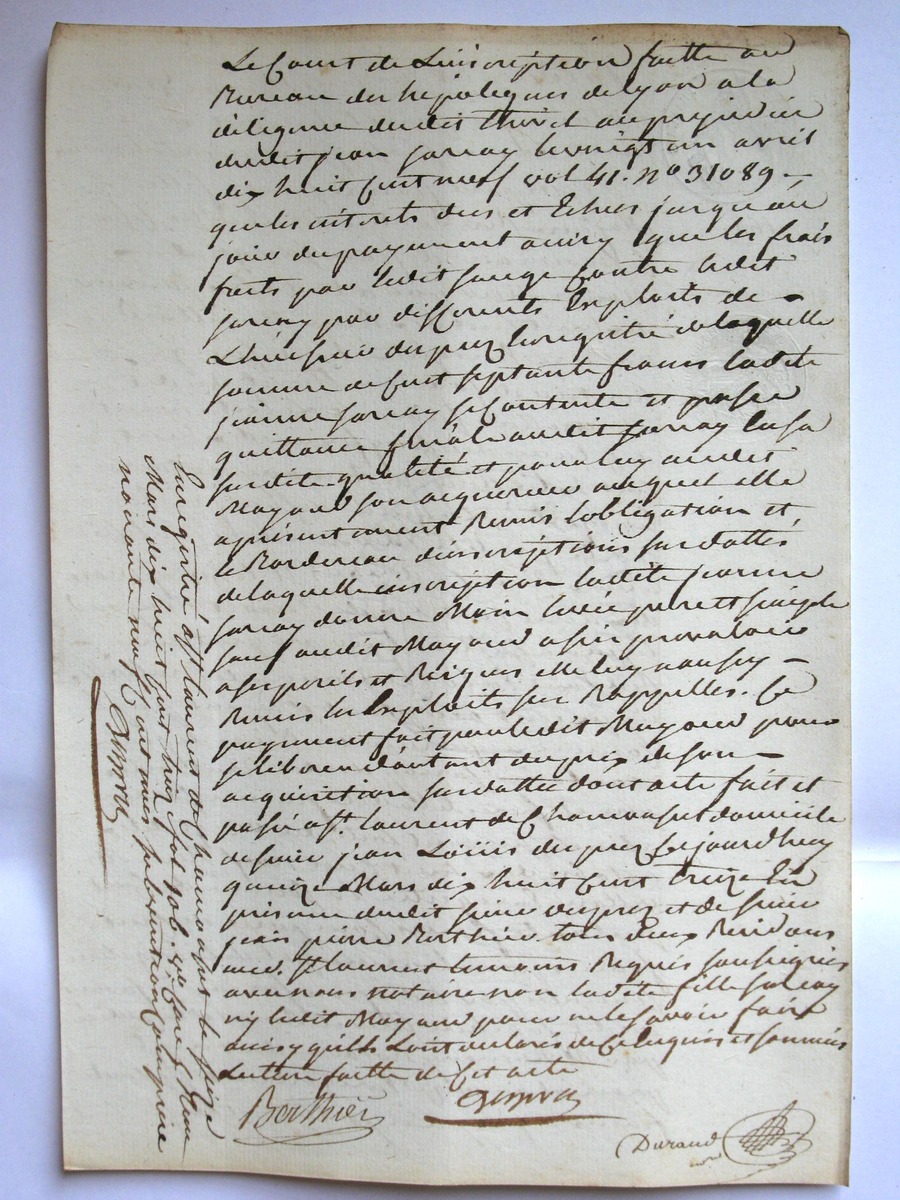 Le Cout de Linscription faitte au
Bureau des hépoteques de Lyon a la
diligence dudit au prejudice
dudit jean le vingt un avril
dix huit Cent neuf vol 41. no 31089 –
que les interets dus et Echus jusqu'au
jour du payement ainsy que les frais
faits par ledit Contre ledit
par differents Exploits de –
Lhuissier enregistré de laquelle
somme de Cent septante francs ladite
jeanne se Contente et passe
quittance finale audit En sa
susdite qualité et pour luy audit
Mayoud son acquereur auquel elle
a présentement Remis Lobligation et
le Bordereau d'inscriptions susdattés
de laquelle inscription ladite jeanne
donne Main Levée pure et simple
sauf audit Mayoud a s'en prevaloir
a ses perils et Risques elle luy a aussy –
Remis les Exploits sus Rappellés. Ce
payement fait par ledit Mayoud pour
se liberer d'autant du prix de son –
acquisition susdattée dont acte fait et
passé a St. Laurent de Chamousset domicile
de sieur jean Loüis Cejourdhuy
quinze Mars dix huit Cent treize En
presence dudit sieur et de sieur
jean pierre Berthier tous deux Residans
aud. St Laurent temoins Requis soussignés
avec nous notaire non ladite fille
ny ledit Mayoud pour ne le savoir faire
ainsy qu'ils L'ont declaré de Ce Requis et sommés
Lecture faitte de Cet acte
Berthier
Durand
Enregistré a St Laurent de Chamousset le seize
Mars dix huit Cent treize fol. 106. vo. Case 5 Reçu